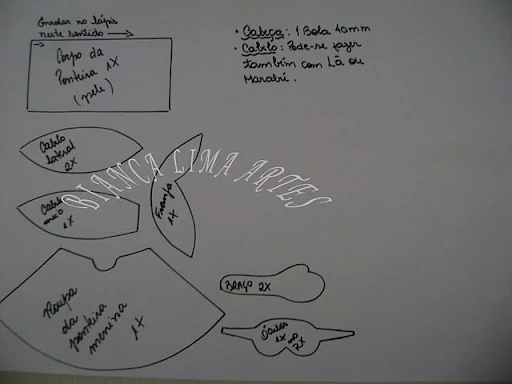 Enrolar no lápis
neste sentido
Corpo da
Ponteira 1X
(pele)
• Cabeça: 1 Bola 40mm
• Cabelo: Pode-se fazer
também com Lã ou
Marabú.
Cabelo
lateral
2X
Cabelo
meio
1X
Franja
1X
BIANCA LIMA ARTES
Roupa
da
ponteira
menina
1X
BRAÇO 2X
1X
2X